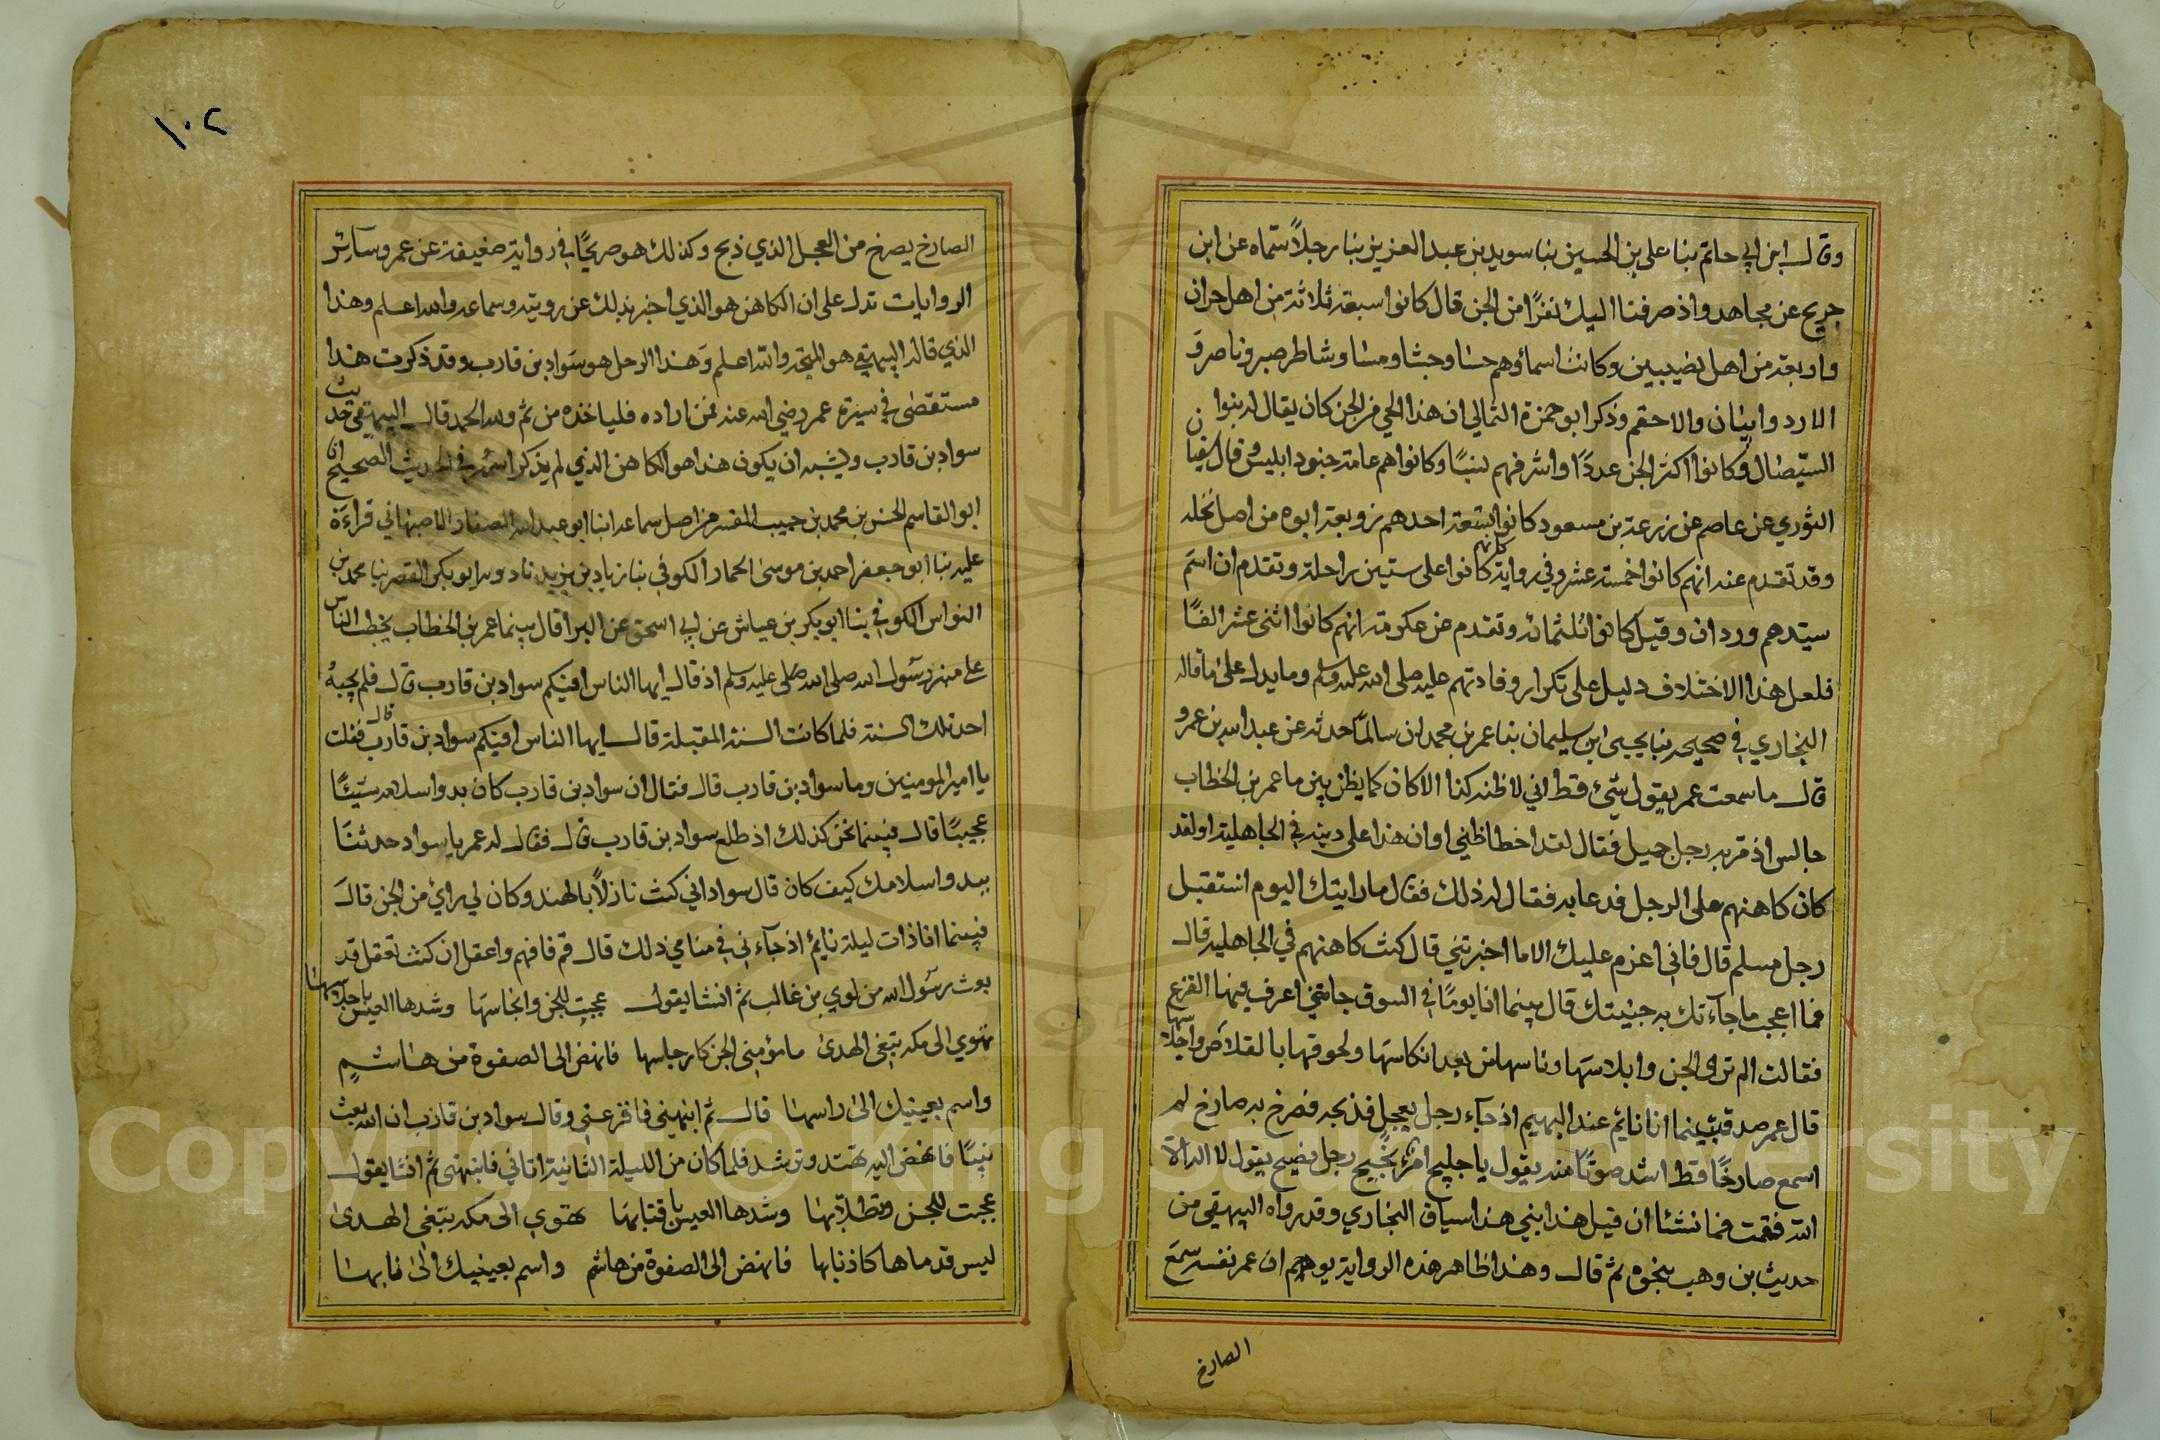 وقال ابن ابي حاتم بنا علي بن الحسين بنا سويد بن عبد العزيز بنا رجلاً سماه عن ابن
جريج عن مجاهد واذ صرفنا اليك نفرًا من الجن قال كانوا سبعة ثلاثة من اهل حران
واربعة من اهل نصيبين وكانت اسماؤهم حسا وحشا ومسا وشاطر صبر وناصر و
الارد وابيان والاحقم وذكر ابو حمزة الثمالي ان هذا الحي من الجن كان يقال لهم بنوا
الشيصبان وكانوا اكثر الجن عددًا واشرفهم نسبًا وكانوا هم عامة جنود ابليس وقال سفيان
الثوري عن عاصم عن زر عن بن مسعود كانوا تسعة احدهم زوبعة ابوه من اصل نخله
وقد تقدم عنه انهم كانوا خمسة عشر وفي رواية كانوا على ستين راحلة وتقدم ان اسم
سيدهم وردان وقيل كانوا ثلثمائه وتقدم عن عكرمة انهم كانوا اثنى عشر الفًا
فلعل هذا الاختلاف دليل على تكرار وفادتهم عليه صلى الله عليه وسلم ومما يدل على ما قاله
البخاري في صحيحه بنا يحيى ابن سليمان بنا عمر بن محمد ان سالمًا حدثه عن عبد الله بن عمرو
قال ما سمعت عمر يقول شئ قط اني لاظنه كذا الا كان كما يظن بينما عمر بن الخطاب
جالس اذ مر به رجل جميل فقال لقد اخطا ظني او ان هذا على دينه في الجاهلية او لقد
كان كاهنهم على الرجل فدعا به فقال له ذلك فقال ما رايتك اليوم استقبل
رجل مسلم قال فاني اعزم عليك الا ما اخبرتني قال كنت كاهنهم في الجاهليه قال
فما اعجب ما جآءتك به جنيتك قال بينما انا يومًا في السوق جاءتني اعرف فيها الفزع
فقالت الم ترى الجن وابلاسها وياسها من بعد انكاسها ولحوقها بالقلاص واحلاسها
قال عمر صدقت بينما انا نايم عند الهتهم اذ جآء رجل بعجل فذبحه فصرخ به صارخ لم
اسمع صارخًا قط اشد صوتًا منه يقول يا جليح امر نجيح رجل فصيح يقول لا اله الا
الله فقمت فما نشئا ان قيل هذا بني هذا سياق البخاري وقد رواه البيهقي من
حديث بن وهب بنحوه ثم قال وهذا ظاهر هذه الرواية يوهم ان عمر نفسه سمع
الصارخ
١٠٢
الصارخ يصرخ من العجل الذي ذبح وكذلك هو صريحًا في رواية ضعيفة عن عمر وسائر
الروايات تدل على ان الكاهن هو الذي اخبر بذلك عن رويته وسماعه والله اعلم وهذا
الذي قاله البيهقي هو المتجه والله اعلم وهذا الرجل هو سواد بن قارب وقد ذكرت هذا
مستقصى في سيرة عمر رضي الله عنه فمن اراده فلياخذه من ثم ولله الحمد قال البيهقي حديث
سواد بن قارب ويشبه ان يكون هذا هو الكاهن الذي لم يذكر اسمه في الحديث الصحيح انا
ابو القاسم الحسن بن محمد بن حبيب المفسر من اصل سماعه انبا ابو عبد الله الصفار الاصبهاني قراءة
عليه بنا ابو جعفر احمد بن موسى الحمار الكوفي بنا زياد بن يزيد بن بادويه ابو بكر القصري بنا محمد بن
النواس الكوفي بنا ابو بكر بن عياش عن ابي اسحق عن البرا قال بينما عمر بن الخطاب يخطب الناس
على منبر رسول الله صلى الله صلى عليه وسلم اذ قال ايها الناس افيكم سواد بن قارب قال فلم يجبه
احد تلك السنة فلما كانت السنة المقبلة قال ايها الناس افيكم سواد بن قارب قال فقلت
يا امير المومنين وما سواد بن قارب قال فقال ان سواد بن قارب كان بدو اسلامه شيئًا
عجيبًا قال فبينما نحن كذلك اذ طلع سواد بن قارب قال فقال له عمر يا سواد حدثنا
ببدو اسلامك كيف كان قال سواد اني كنت نازلاً بالهند وكان لي راي من الجن قال
فبينما انا ذات ليلة نايم اذ جآءني في منامي ذلك قال قم فافهم واعقل ان كنت تعقل قد
بعث رسول الله من لوي بن غالب ثم انشا يقول عجبت للجن وانجاسها وشدها العيس باحلاسها
تهوي الى مكه تبغي الهدى ما مؤمني الجن كارجاسها فانهض الى الصفوة من هاشم
واسم بعينيك الى راسها قال ثم انبهني فافزعني وقال سواد بن قارب ان الله بعث
نبيًا فانهض اليه تهتد وترشد فلما كان من الليلة الثانية اتاني فانبهني ثم انشا يقول
عجبت للجن وتطلابها وشدها العيس باقتابها تهوي الى مكه تبغي الهدى
ليس قدماها كاذنابها فانهض الى الصفوة من هاشم واسم بعينيك الى نابها
Copyright © King Saud University